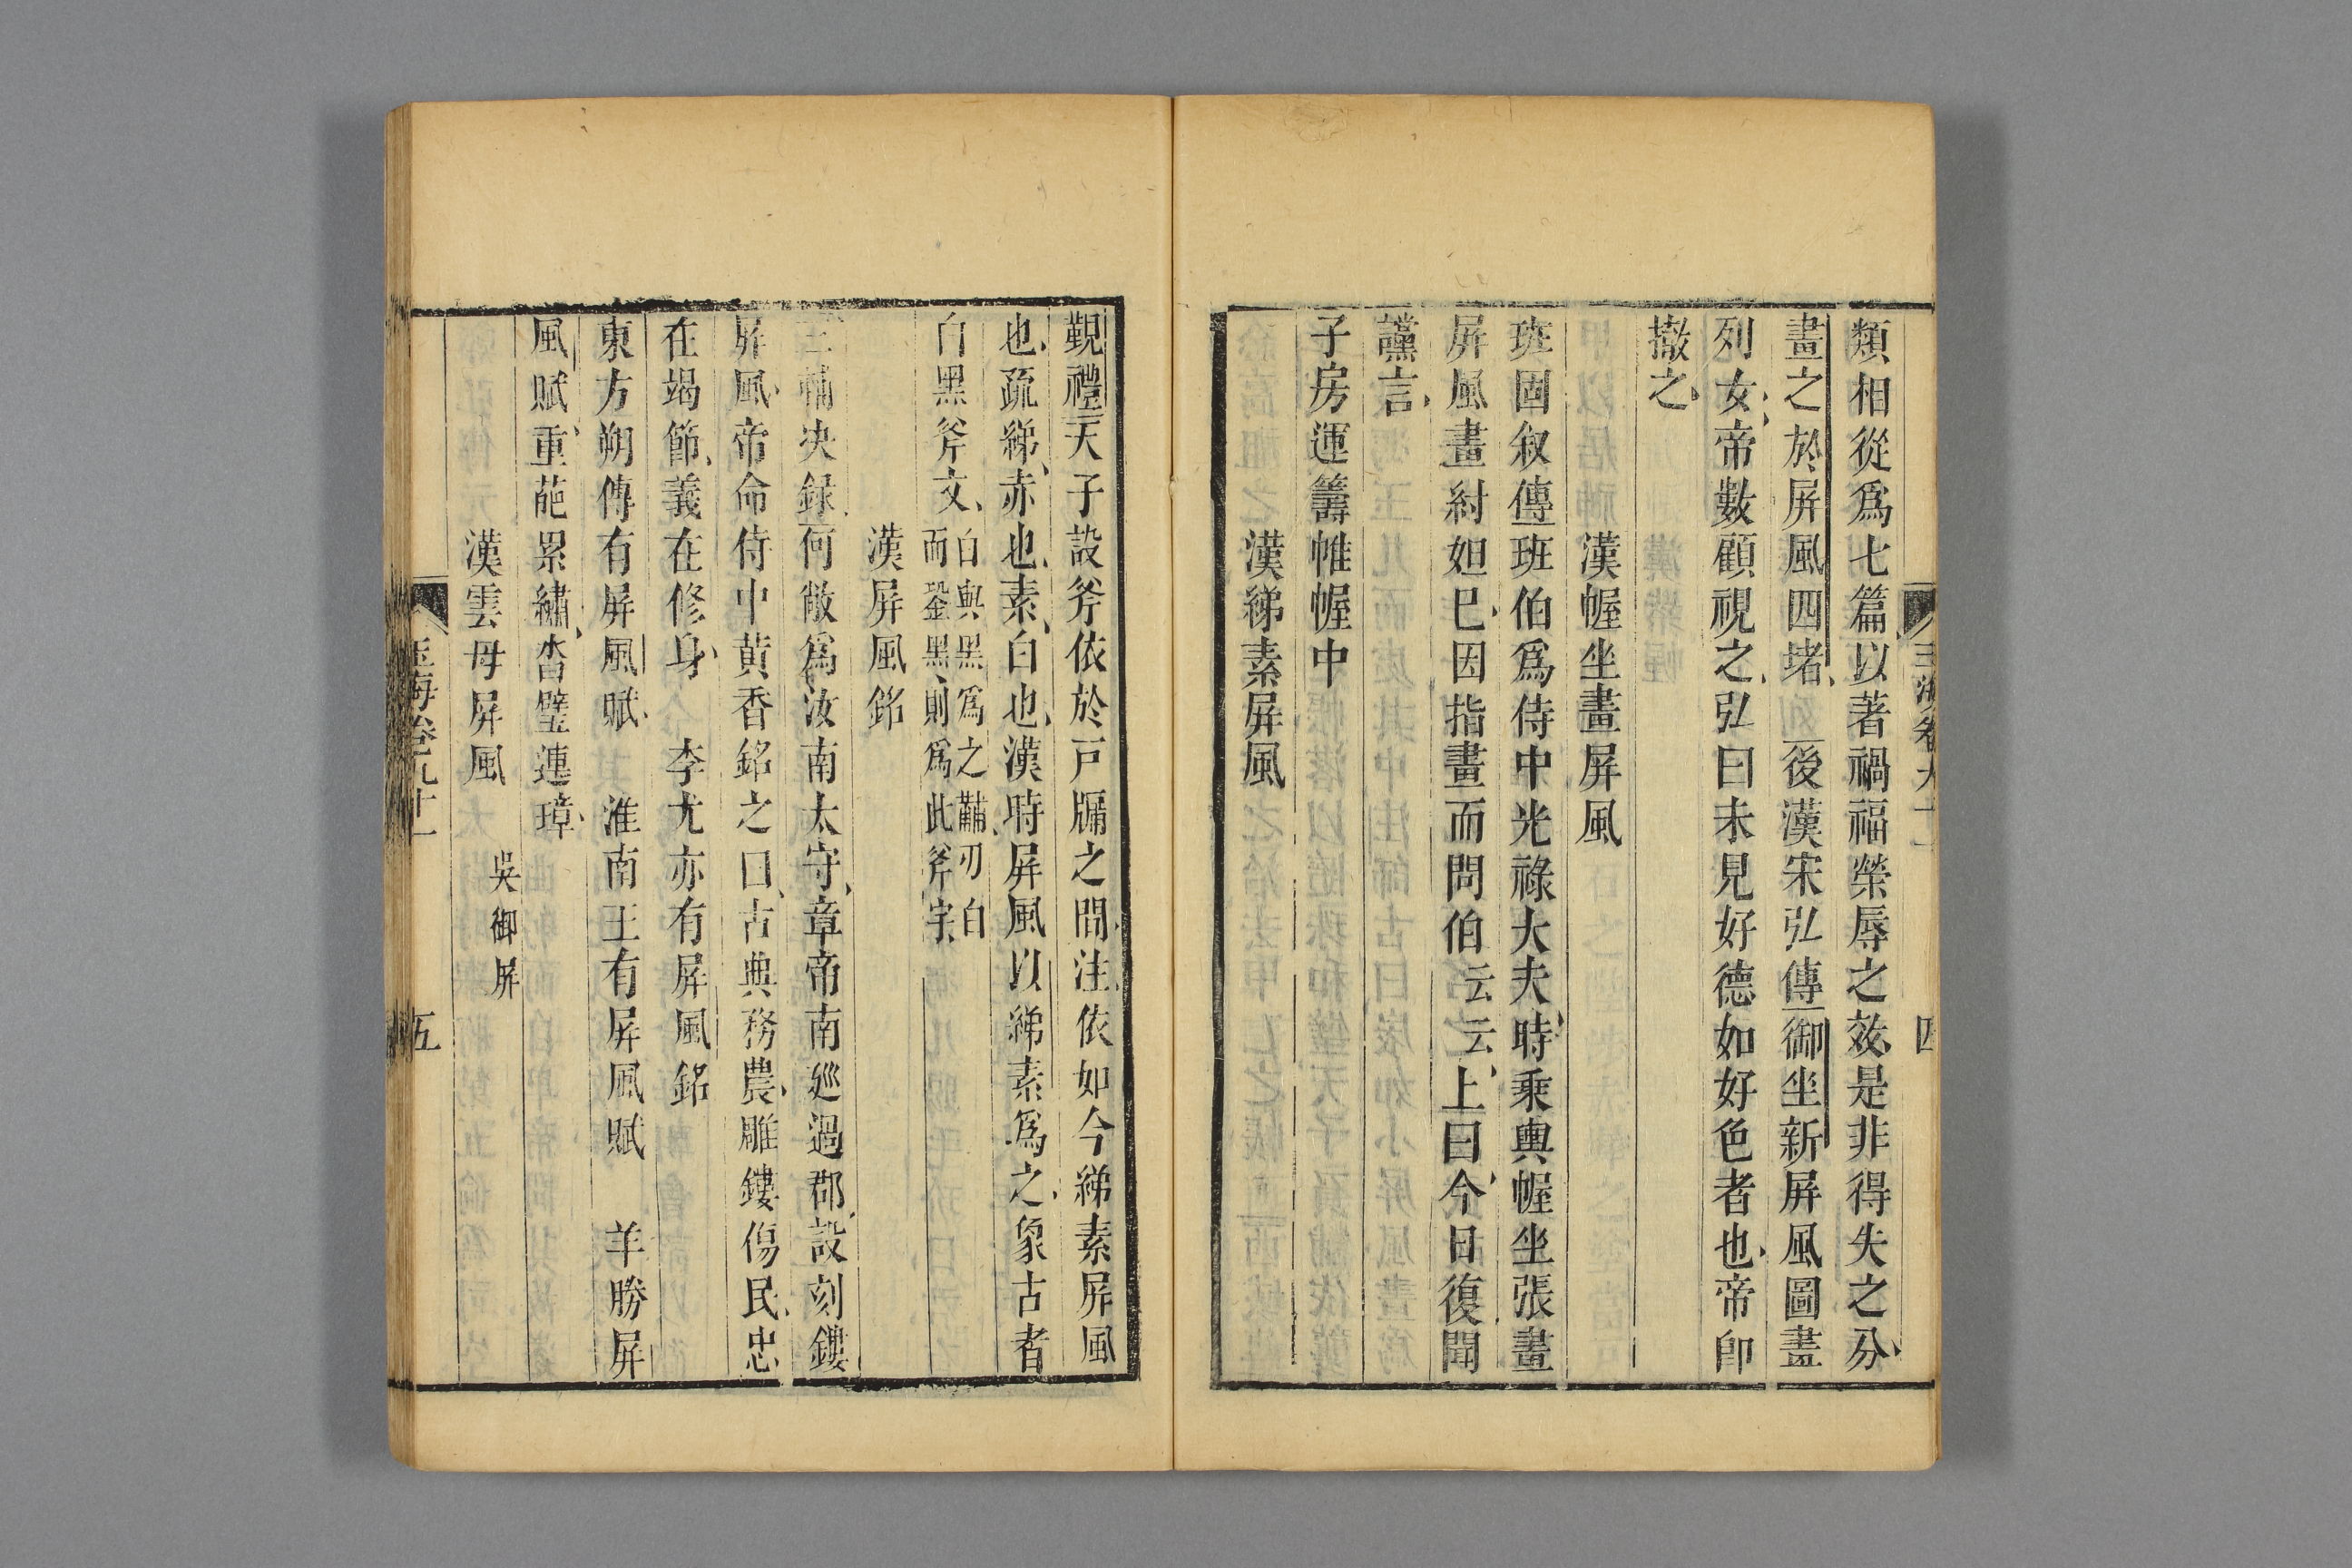 類相從爲七篇以著禍福榮辱之效是非得失之分
畫之於屏風四堵後漢宋弘傳御坐新屏風圖畫
列女帝數顧視之弘曰未見好德如好色者也帝卽
撤之
漢幄坐畫屏風
班固叙傳班伯爲侍中光祿大夫時乘輿幄坐張畫
屏風畫紂妲巳因指畫而問伯云云上曰今日復聞
讜言
子房運籌帷幄中
漢綈素屏風
覲禮天子設斧依於戸牖之間注依如今綈素屏風
也疏綈赤也素白也漢時屏風以綈素爲之象古者
白黑斧文白與黑爲之黼刃白
而銎黑則爲此斧字
漢屏風銘
三輔决録何敞爲汝南太守章帝南廵過郡設刻鏤
屏風帝命侍中黃香銘之曰古典務農雕鏤傷民忠
在竭節義在修身 李尤亦有屏風銘
東方朔傳有屏風賦 淮南王有屏風賦 羊勝屏
風賦重葩累繡沓璧連璋
漢雲母屏風 吳御屏
玉海卷九十一 五